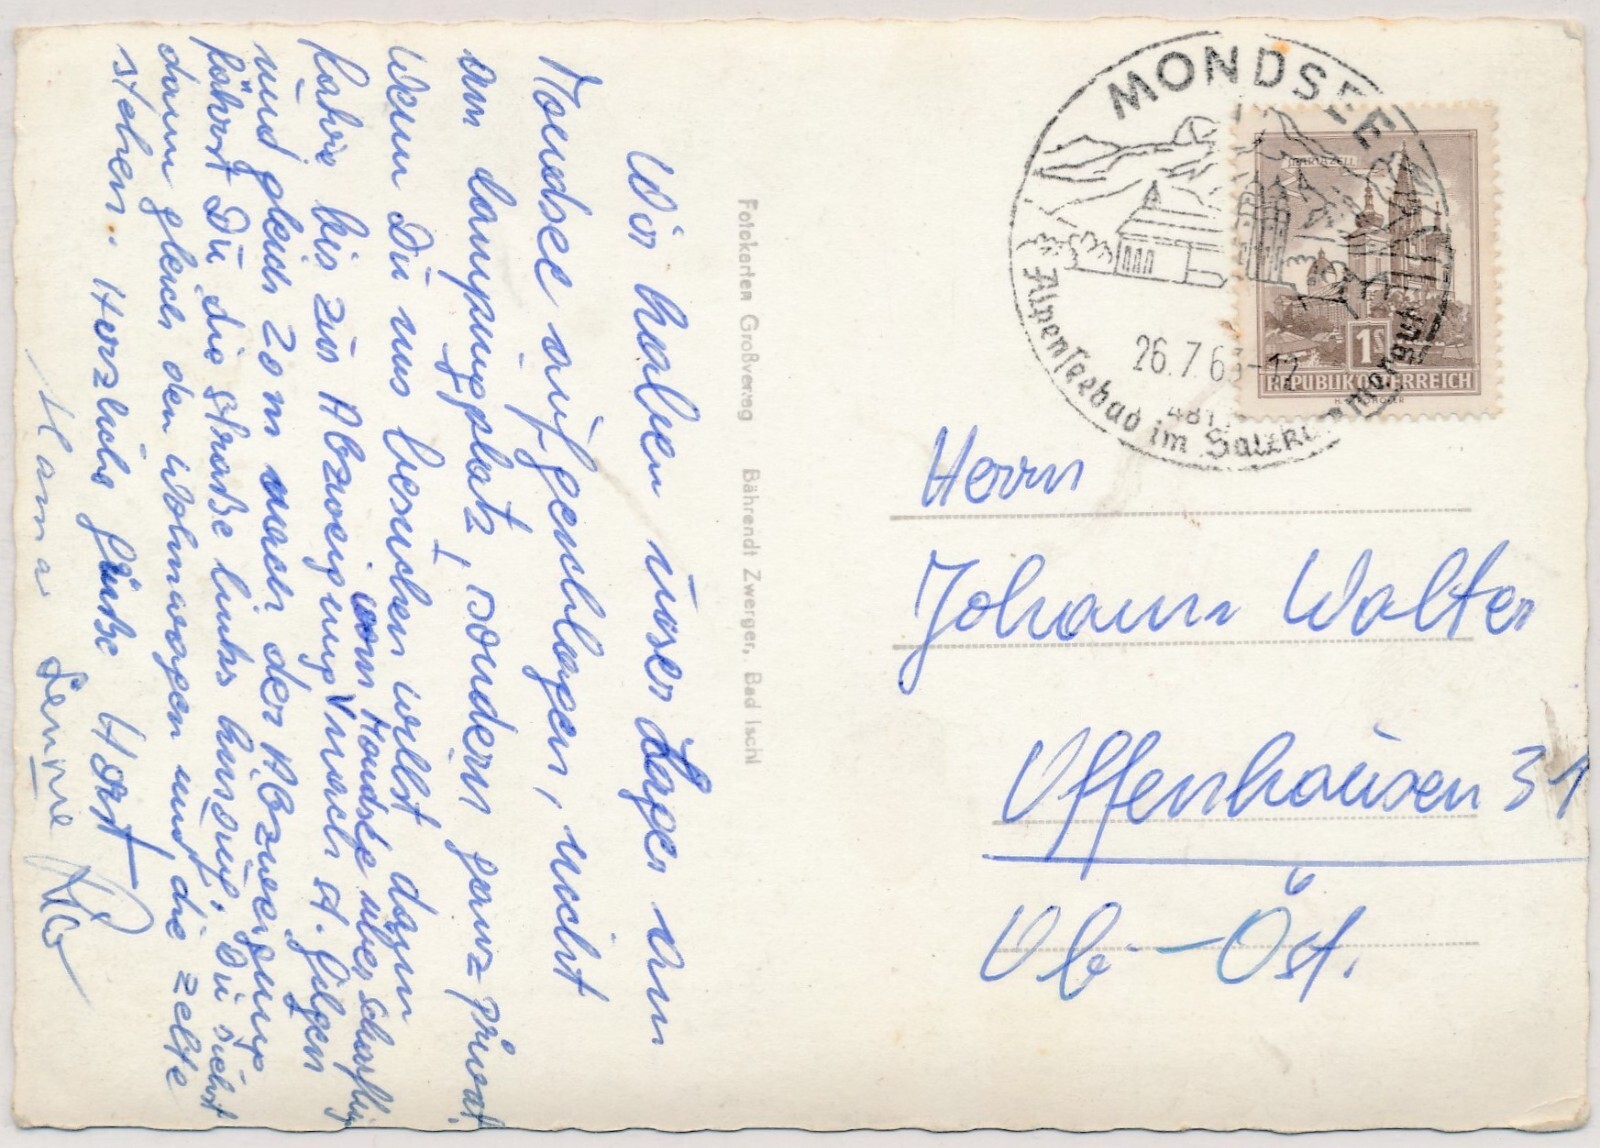 Wir haben unser Lager am
Mondsee aufgeschlagen, nicht
am Campingplatz, sondern ganz privat.
Wenn Du uns besuchen willst dann
fahre bis zur Abzweigung vom Mondsee über Scharfling
nach St. Gilgen
und gleich 20 m nach der Abzweigung
fährst Du die Straße links hinauf. Du siehst
dann gleich den Wohnwagen und die Zelte
stehen. Herzliche Grüße Horst
Hanna
Fotokarten Großverlag Bährendt Zwerger, Bad Ischl
MONDSEE
26.7.63-12
Alpenseebad im Salzk
MARIAZELL
1S
REPUBLIK ÖSTERREICH
Herrn
Johann Walter
Offenhausen 31
Ob-Öst.